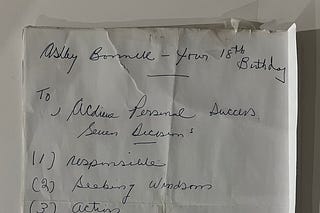 Ashley Bonnell - Your 18th
Birthday
To
Achieve Personal Success,
Seven Decisions
(1) responsible
(2) Seeking Windsom
(3) action